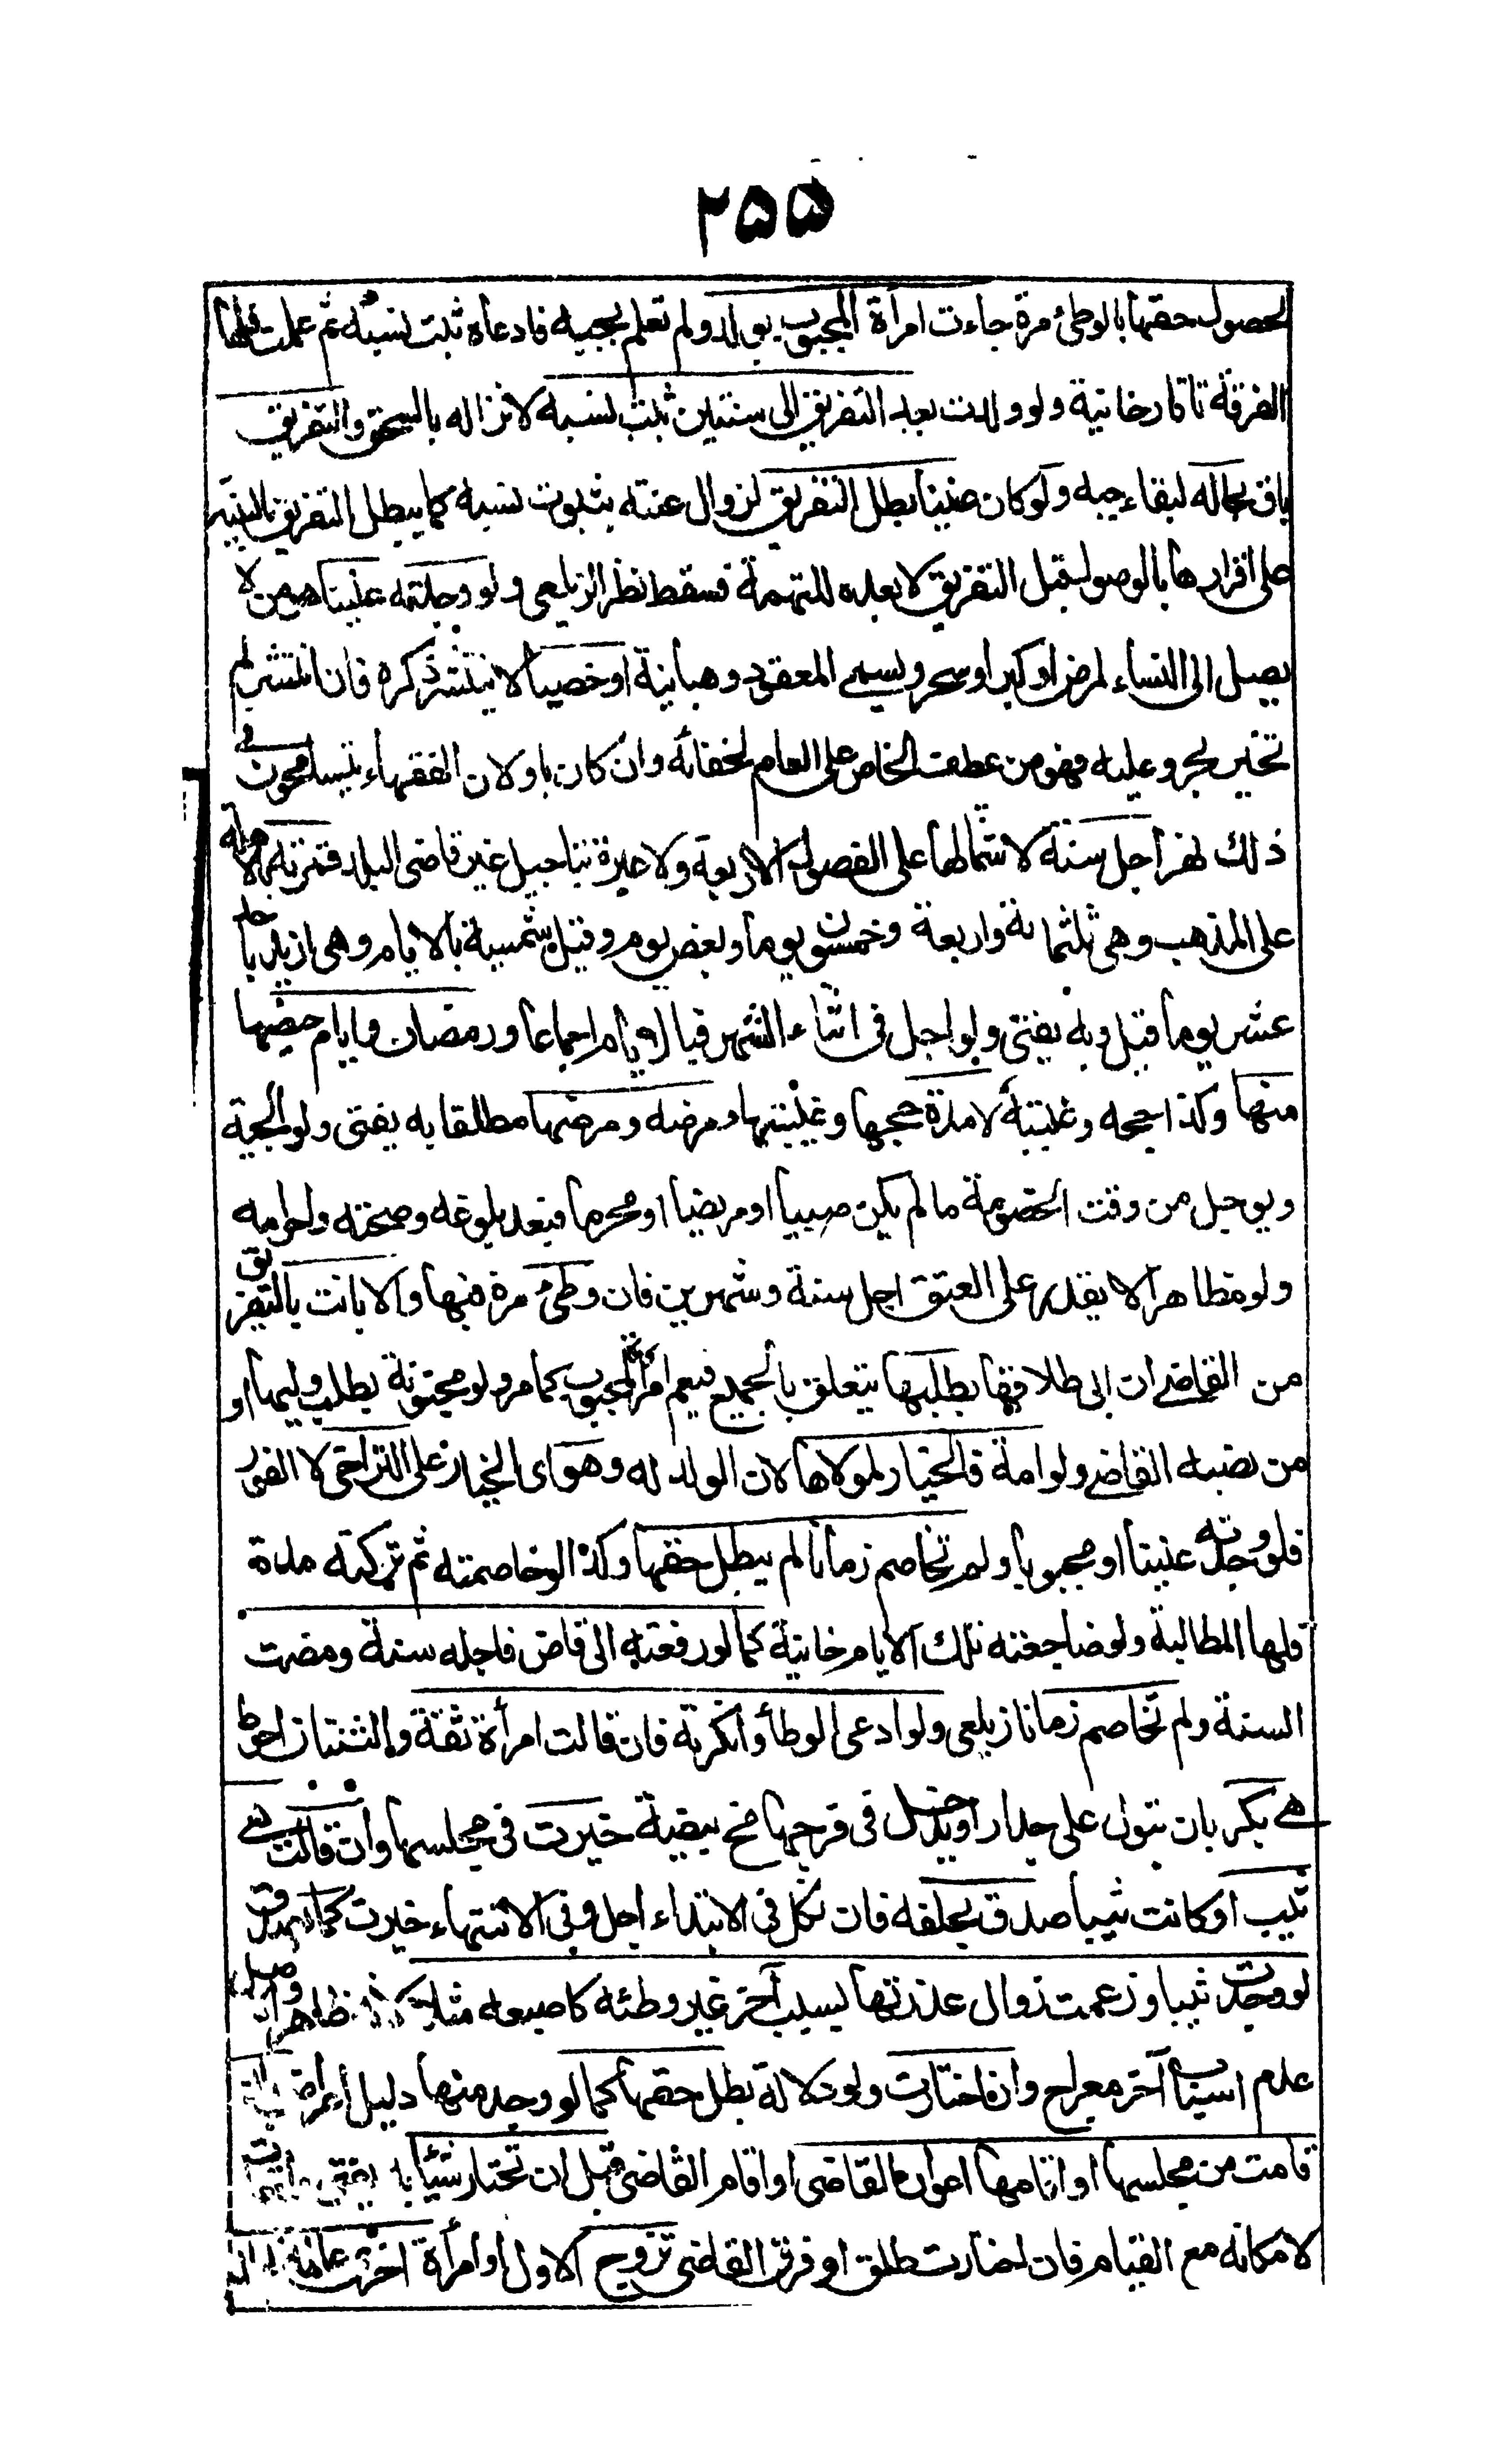 ٢٥٥
لحصول حقها بالوطئ مرة جاءت امرأة المجبوب بولد ولم تعلم بجبه فادعاه ثبت نسبه ثم علمت فلها
الفرقة تاتارخانية ولو ولدت بعد التفريق الى سنتين ثبت نسبه لانزاله بالسحق والتفريق
باق بحاله لبقاء جبه ولو كان عنينا بطل التفريق لزوال عنته بثبوت نسبه كما يبطل التفريق بالبينة
على اقرارها بالوصول قبل التفريق لا بعده للتهمة فسقط نظر الزيلعي ولو وجدته عنينا هو من لا
يصل الى النساء لمرض او كبر او سحر ويسمى المعقود وهبانية او خصيا لا ينتشر ذكره فان انتشر لم
تخير بحر وعليه فهو من عطف الخاص على العام لخفائه وان كان باو لان الفقهاء يتسامحون في
ذلك نهر اجل سنة لاشتمالها على الفصول الاربعة ولا عبرة بتاجيل غير قاضى البلد قمرية بالاهلة
على المذهب وهى ثلثمائة واربعة وخمسون يوما وبعض يوم وقيل شمسية بالايام وهى ازيد باحد
عشر يوما قيل وبه يفتى ولو اجل في اثناء الشهر فبالايام اجماعا ورمضان وايام حيضها
منها وكذا حجه وغيبته لا مدة حجها وغيبتها ومرضه ومرضها مطلقا به يفتى ولوالجية
ويوجل من وقت الخصومة ما لم يكن صبيا او مريضا او محرما فبعد بلوغه وصحته واحرامه
ولو مظاهرا لا يقدر على العتق اجل سنة وشهرين فان وطئ مرة فبها والا بانت بالتفريق
من القاضى ان ابى طلاقها بطلبها يتعلق بالجميع فيعم امرأة المجبوب كما مر ولو مجنونة يطلب وليها او
من نصبه القاضى ولو امة فالخيار لمولاها لان الولد له وهو اى الخيار على التراخى لا الفور
فلو وجدته عنينا او مجبوبا ولم تخاصم زمانا لم يبطل حقها وكذا لو خاصمته ثم تركته مدة
فلها المطالبة ولو ضاجعته تلك الايام خانية كما لو رفعته الى قاض فاجله سنة ومضت
السنة ولم تخاصم زمانا زيلعى ولو ادعى الوطأ وانكرته فان قالت امرأة ثقة والثنتان احوط
هى بكر بان تبول على جدار او يدخل في فرجها مخ بيضة خيرت في مجلسها وان قالت هى
ثيب او كانت ثيبا صدق بحلفه فان نكل في الابتداء اجل وفي الانتهاء خيرت كما يصدق
لو وجدت ثيبا وزعمت زوال عذرتها بسبب آخر غير وطئه كاصبعه مثلا لانه ظاهر والاصل
علم اسباب آخر معراج وان اختارت ولو دلالة بطل حقها كما لو وجد منها دليل اعراض بان
قامت من مجلسها او اقامها اعوان القاضى او اقام القاضى قبل ان تختار شيئا به يفتى واقعات
لامكانه مع القيام فان اختارت طلق او فرق القاضى تزوج الاول او امرأة اخرى عالمة بحاله